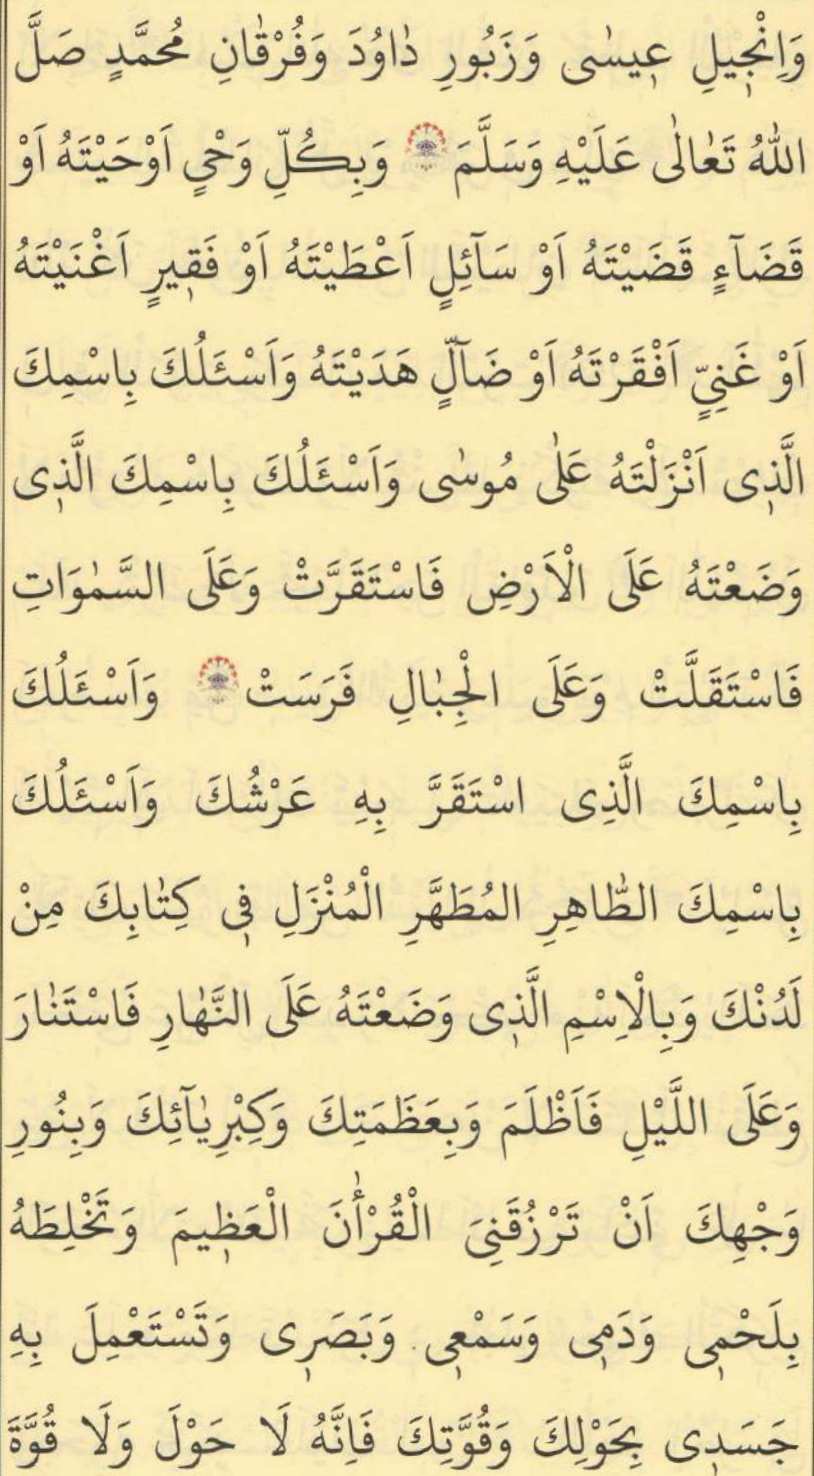 وَاِنْجٖيلِ عٖيسٰى وَزَبُورِ دٰاوُدَ وَفُرْقٰانِ مُحمَّدٍ صَلَّ
اللّٰهُ تَعٰالٰى عَلَيْهِ وَسَلَّمَ وَبِكُلِّ وَحْيٍ اَوْحَيْتَهُ اَوْ
قَضَآءٍ قَضَيْتَهُ اَوْ سَآئِلٍ اَعْطَيْتَهُ اَوْ فَقٖيرٍ اَغْنَيْتَهُ
اَوْ غَنِيٍّ اَفْقَرْتَهُ اَوْ ضَآلٍّ هَدَيْتَهُ وَاَسْئَلُكَ بِاسْمِكَ
الَّذٖى اَنْزَلْتَهُ عَلٰى مُوسٰى وَاَسْئَلُكَ بِاسْمِكَ الَّذٖى
وَضَعْتَهُ عَلَى الْاَرْضِ فَاسْتَقَرَّتْ وَعَلَى السَّمٰوَاتِ
فَاسْتَقَلَّتْ وَعَلَى الْجِبٰالِ فَرَسَتْ وَاَسْئَلُكَ
بِاسْمِكَ الَّذِى اسْتَقَرَّ بِهِ عَرْشُكَ وَاَسْئَلُكَ
بِاسْمِكَ الطّٰاهِرِ المُطَهَّرِ الْمُنْزَلِ فٖى كِتٰابِكَ مِنْ
لَدُنْكَ وَبِالْاِسْمِ الَّذٖى وَضَعْتَهُ عَلَى النَّهٰارِ فَاسْتَنٰارَ
وَعَلَى اللَّيْلِ فَاَظْلَمَ وَبِعَظَمَتِكَ وَكِبْرِيٰآئِكَ وَبِنُورِ
وَجْهِكَ اَنْ تَرْزُقَنِىَ الْقُرْأٰنَ الْعَظٖيمَ وَتَخْلِطَهُ
بِلَحْمٖى وَدَمٖى وَسَمْعٖى وَبَصَرٖى وَتَسْتَعْمِلَ بِهِ
جَسَدٖى بِحَوْلِكَ وَقُوَّتِكَ فَاِنَّهُ لَا حَوْلَ وَلَا قُوَّةَ